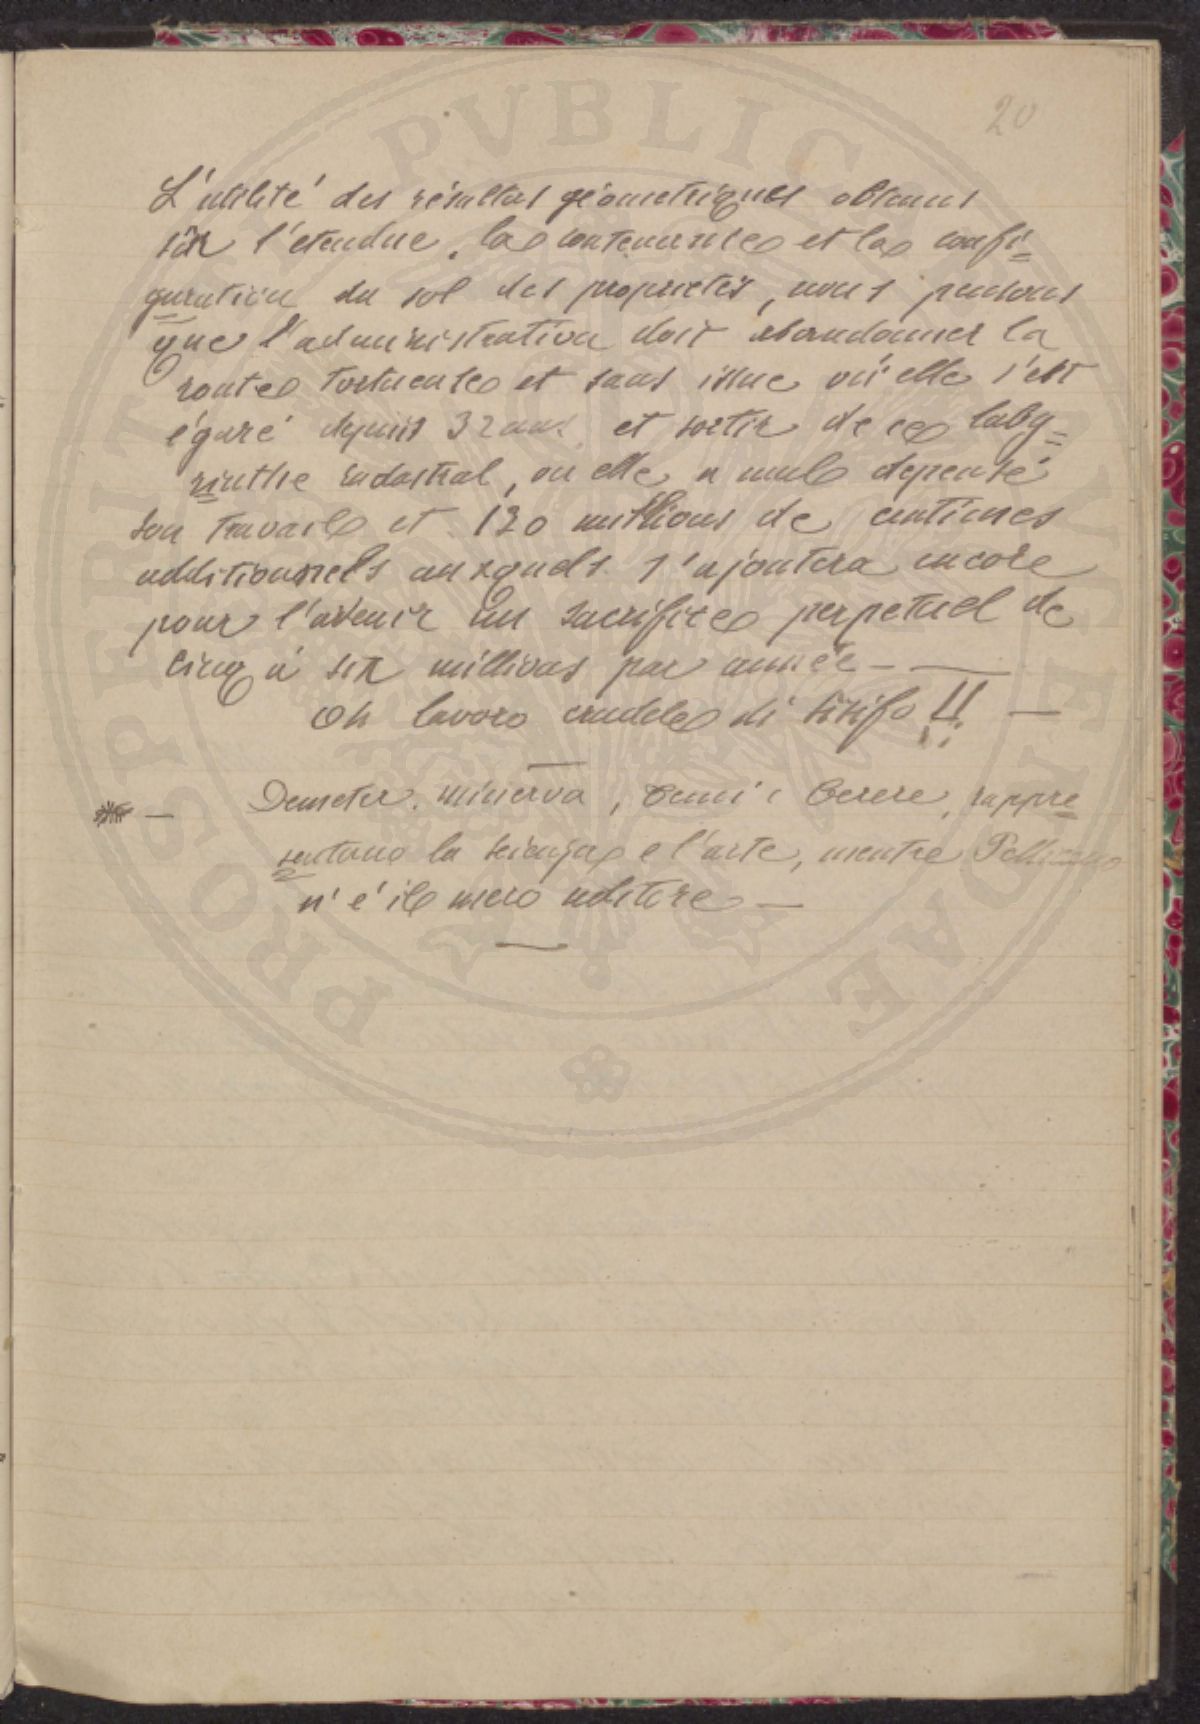 20
L'utilité des résultas géometriques obtenus
sur l'etendue, la contenense et la confi=
guration du sol des proprietés, nous pensons
que l'administration doit abandonner la
route tortuense et sans issue où elle s'est
égaré depuis 32 ans et sortir de ce laby=
rinthe cadastral, ou elle a mal depensé
son travail et 120 millions de centimes
additionnels auxquels s'ajoutera encore
pour l'avenir un sacrifice perpetuel de
cinq à six millions par année —
Oh lavoro crudele di sisifo !! —
— Demeter, minerva, Cerere, rappre=
sentano la scienza e l'arte, mentre
n'é il mero uditore —
PVBLIC
PROSPERITATE